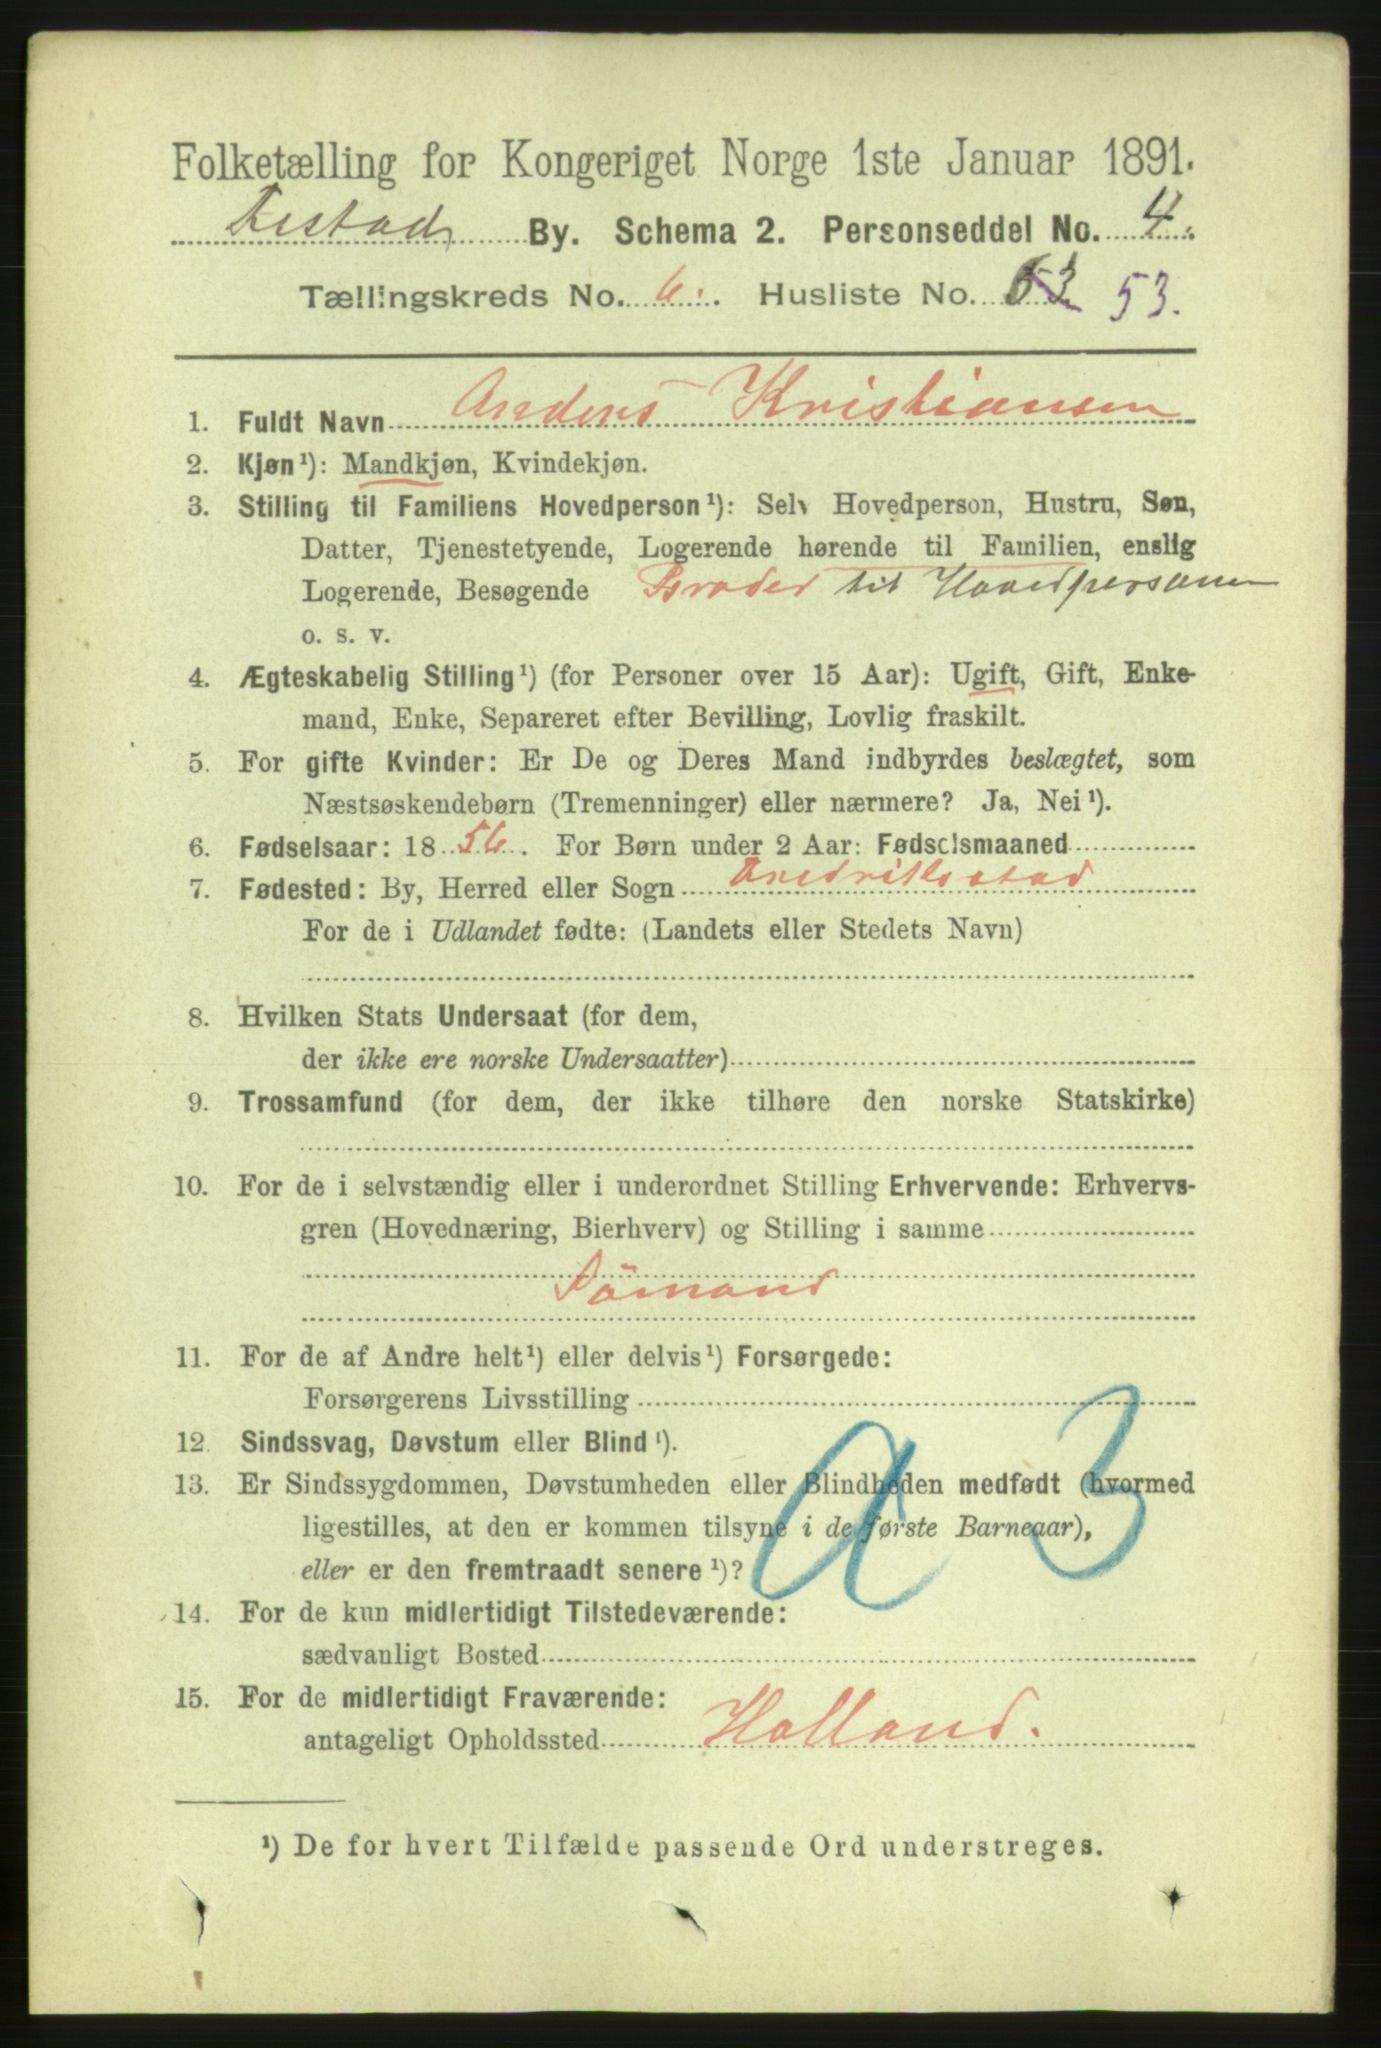 Folketælling for Kongeriget Norge 1ste Januar 1891.
Frstad By. Schema 2. Personseddel No. 4.
Tællingskreds No. 6. Husliste No. 53.
1. Fuldt Navn Anders Kristiansen
2. Kjøn¹): Mandkjøn, Kvindekjøn.
3. Stilling til Familiens Hovedperson¹): Selv Hovedperson, Hustru, Søn,
Datter, Tjenestetyende, Logerende hørende til Familien, enslig
Logerende, Besøgende Broder til Hovedpersonen
o. s. v.
4. Ægteskabelig Stilling¹) (for Personer over 15 Aar): Ugift, Gift, Enke-
mand, Enke, Separeret efter Bevilling, Lovlig fraskilt.
5. For gifte Kvinder: Er De og Deres Mand indbyrdes beslægtet, som
Næstsøskendebørn (Tremenninger) eller nærmere? Ja, Nei¹).
6. Fødselsaar: 1856. For Børn under 2 Aar: Fødselsmaaned
7. Fødested: By, Herred eller Sogn Fredriksstad
For de i Udlandet fødte: (Landets eller Stedets Navn)
8. Hvilken Stats Undersaat (for dem,
der ikke ere norske Undersaatter)
9. Trossamfund (for dem, der ikke tilhøre den norske Statskirke)
10. For de i selvstændig eller i underordnet Stilling Erhvervende: Erhvervs-
gren (Hovednæring, Bierhverv) og Stilling i samme
Sömand
11. For de af Andre helt¹) eller delvis¹) Forsørgede:
Forsørgerens Livsstilling
12. Sindssvag, Døvstum eller Blind¹).
13. Er Sindssygdommen, Døvstumheden eller Blindheden medfødt (hvormed
ligestilles, at den er kommen tilsyne i de første Barneaar),
eller er den fremtraadt senere¹)?
a 3
14. For de kun midlertidigt Tilstedeværende:
sædvanligt Bosted
15. For de midlertidigt Fraværende:
antageligt Opholdssted Holland.
¹) De for hvert Tilfælde passende Ord understreges.